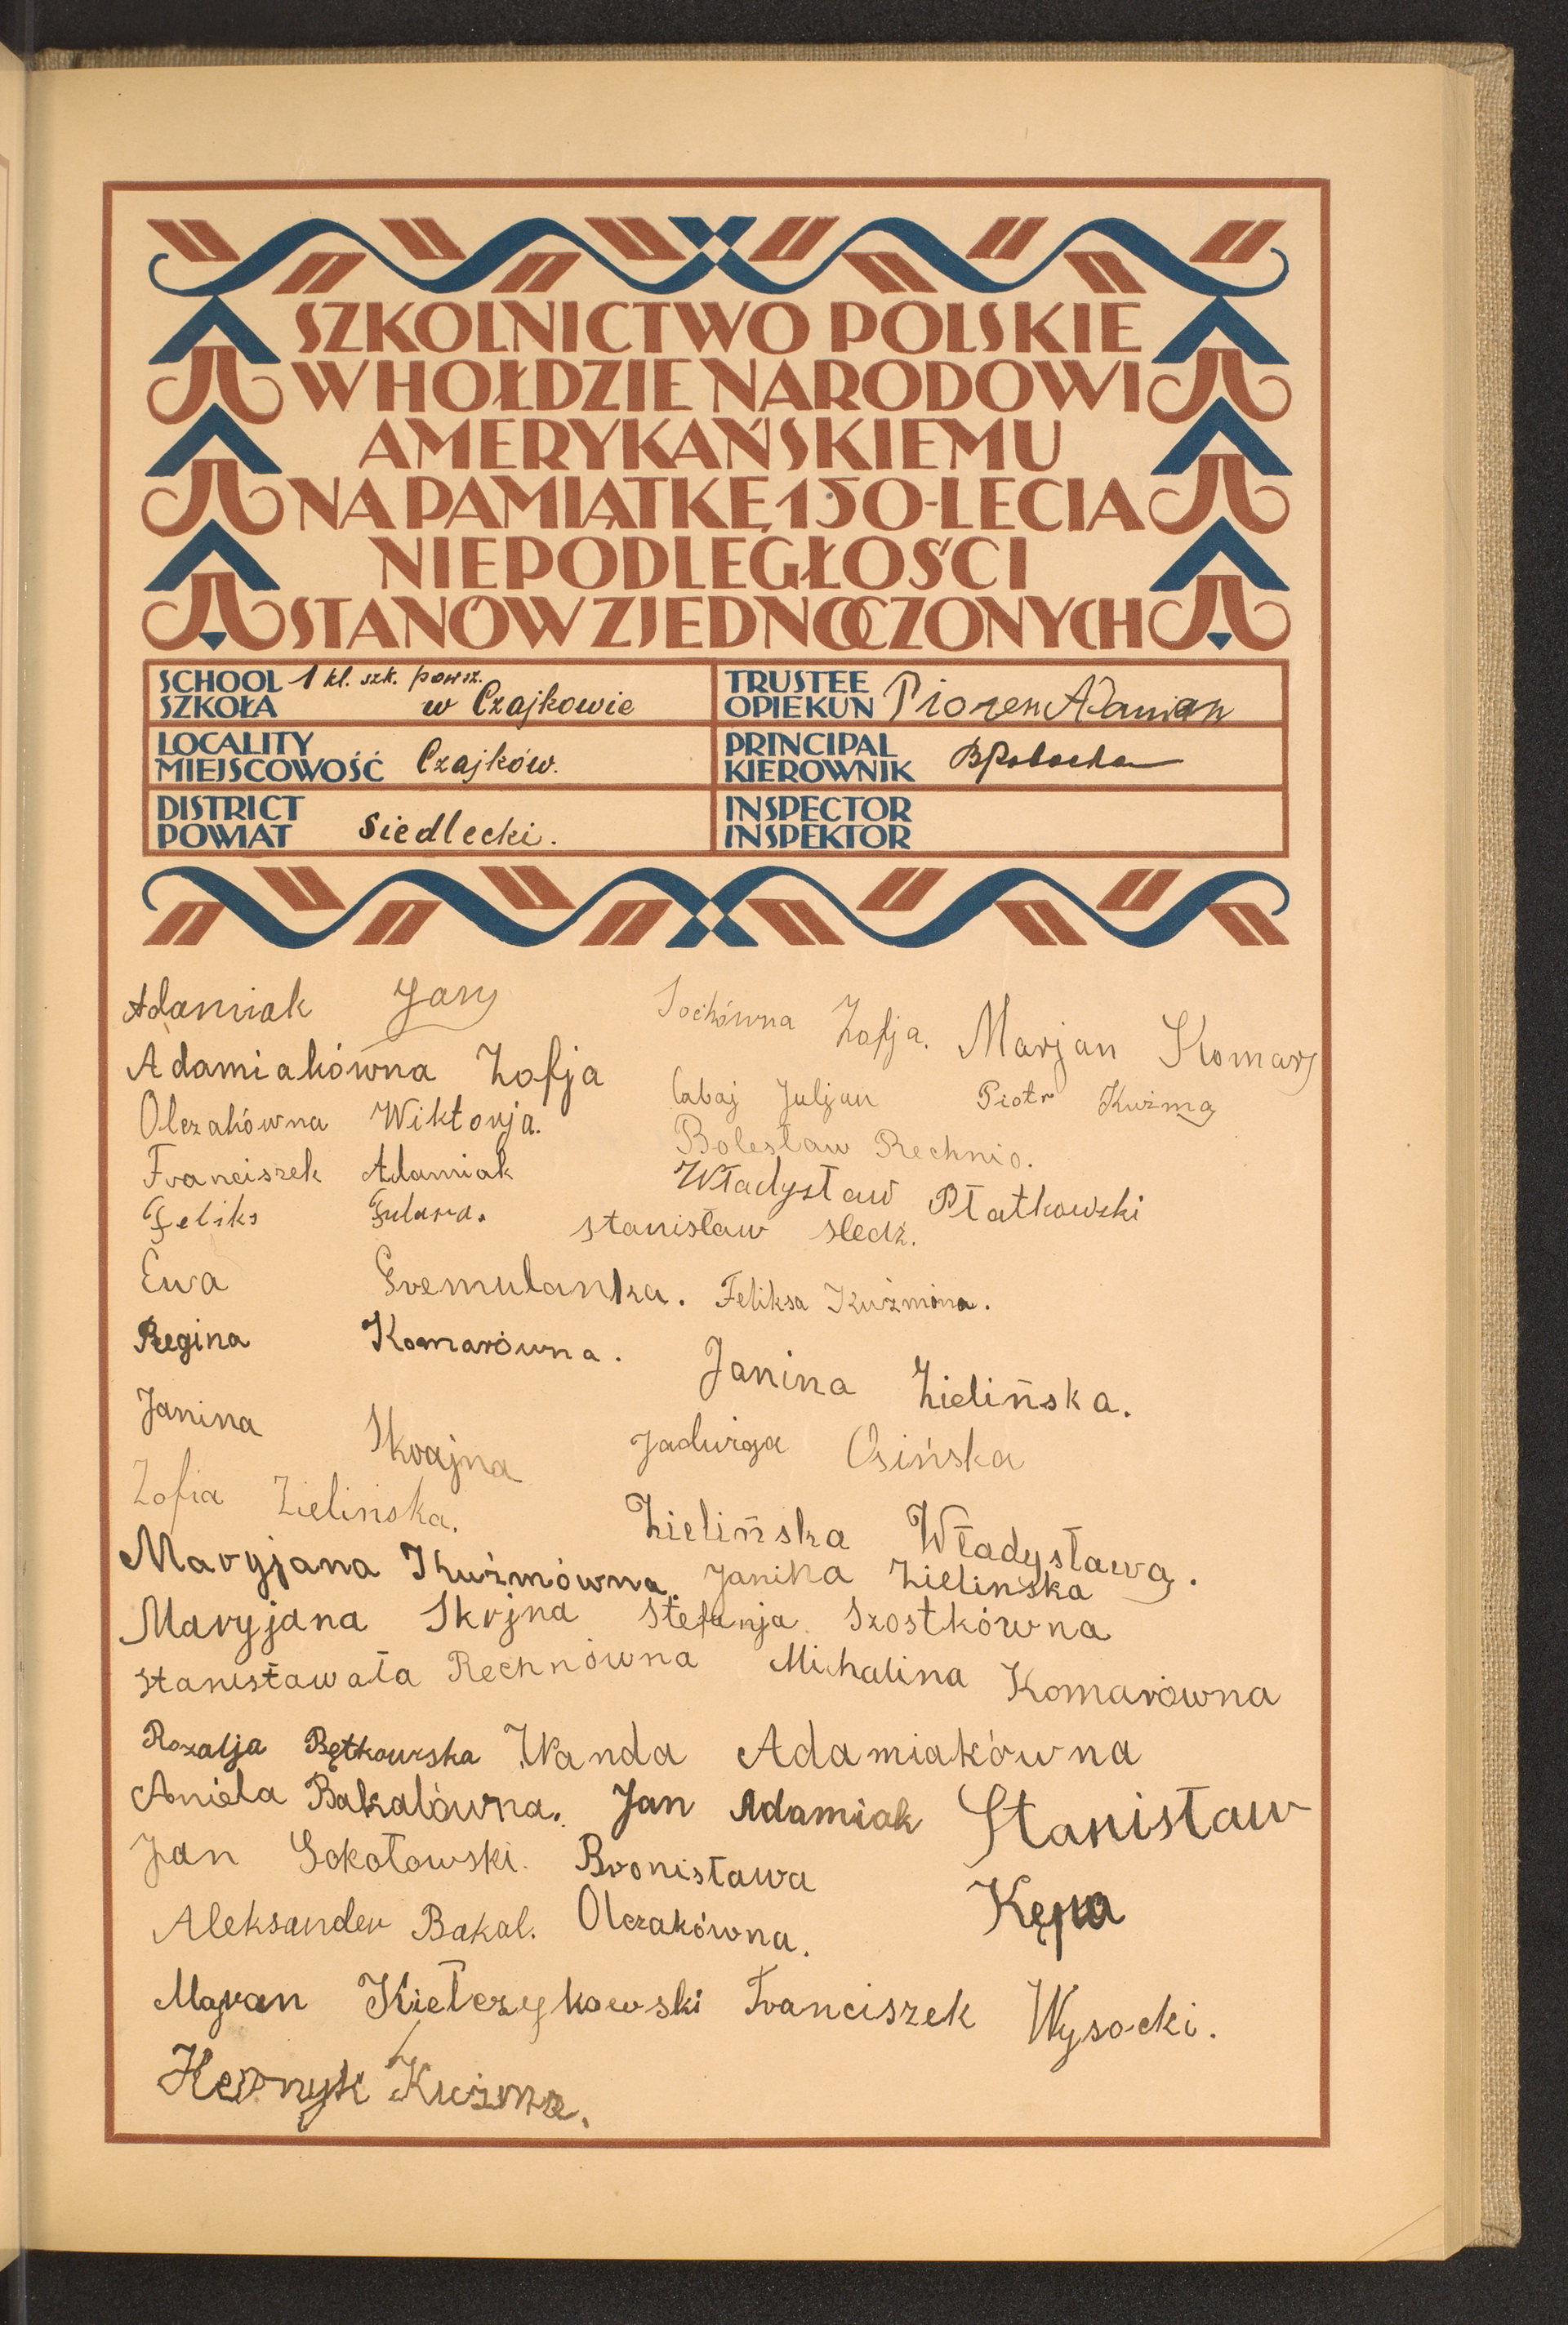 SZKOLNICTWO POLSKIE
W HOŁDZIE NARODOWI
AMERYKAŃSKIEMU
NA PAMIĄTKĘ 150-LECIA
NIEPODLEGŁOŚCI
STANÓW ZJEDNOCZONYCH
SCHOOL SZKOŁA 1 kl. szk. powsz. w Czajkowie
TRUSTEE OPIEKUN
LOCALITY MIEJSCOWOŚĆ Czajków.
PRINCIPAL KIEROWNIK
DISTRICT POWIAT Siedlecki.
INSPECTOR INSPEKTOR
Adamiak
Sochówna Zofja. Marjan Komar
Adamiakówna Zofja
Cabaj Juljan Piotr Kuźma
Olczakówna Wiktorja.
Bolesław Rechnio.
Franciszek Adamiak
Władysław Płatkowski
Feliks Fulara.
stanisław sledź.
Ewa Gremulanka. Feliksa Kuźmina.
Regina Komarówna.
Janina Zielińska.
Janina Skrajna
Jadwiga Osińska
Zofia Zielinska.
Zielińska Władysława.
Maryjana Kuźmówna. Janina Zielinska
Maryjana Skrjna Stefanja Szostkówna
stanisławała Rechnówna Michalina Komarówna
Rozalja Bętkowska Wanda Adamiakówna
Aniela Bakalówna. Jan Adamiak Stanisław
Jan Sokołowski. Bronisława Kępa
Aleksander Bakal. Olczakówna.
Kiełczykowski Franciszek Wysocki.
Kuźma.